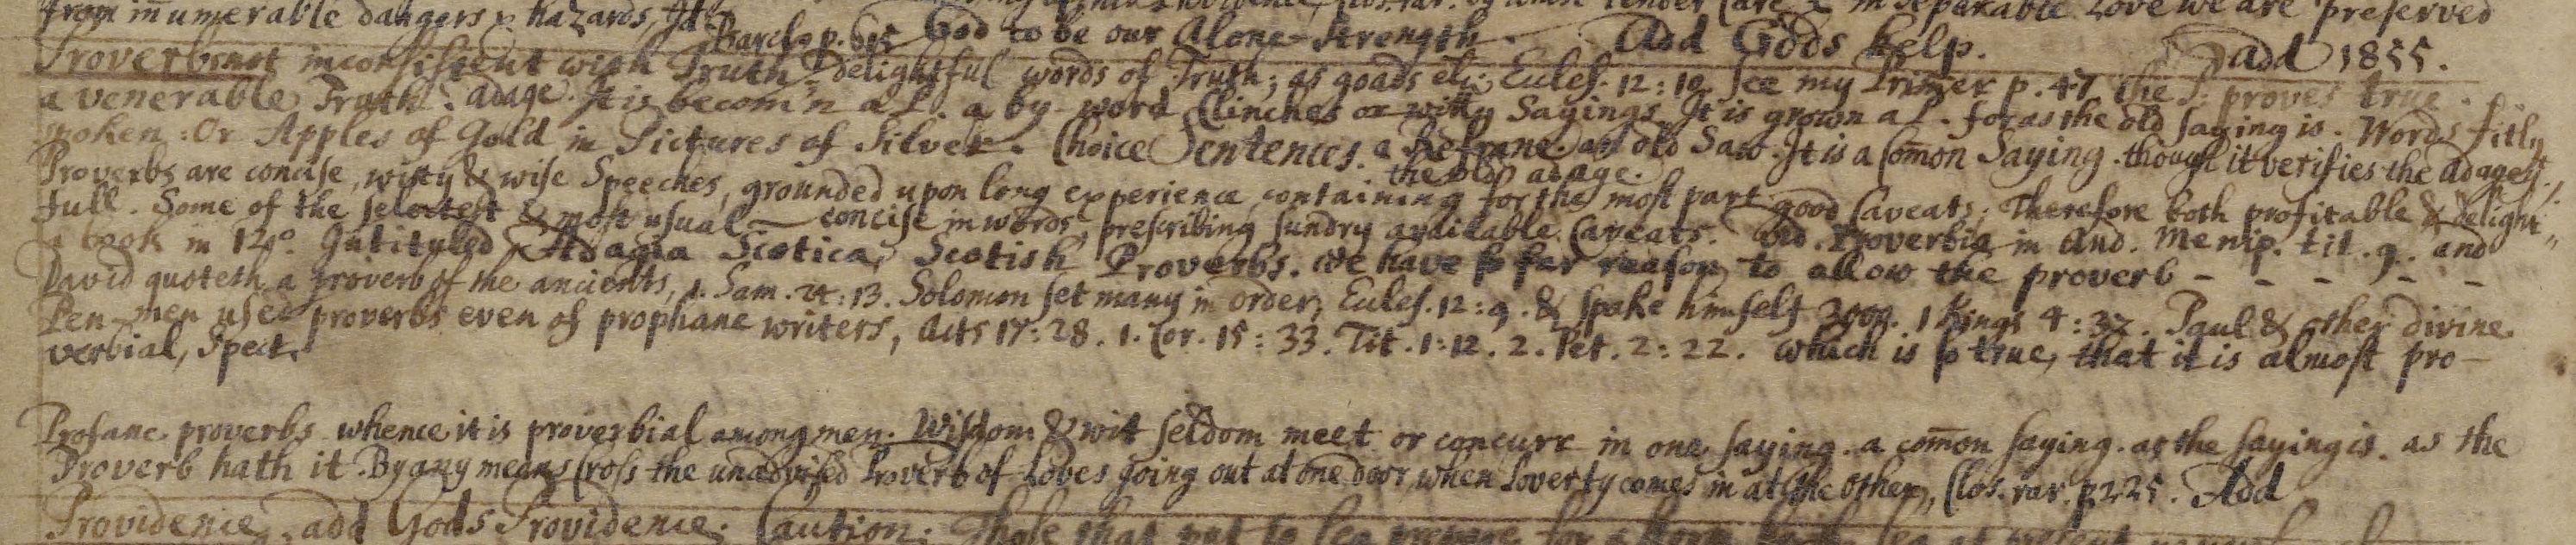 from innumerable dangers & hazards, Id. Barclo p. 615 God to be our Alone-Strength. Add Gods help. add 1855.
Proverbs not inconsistent with Truth. delightful words of Truth; as goads etc; Eccles. 12:10. See my Primer p. 47. the P. proves true.
a venerable Truth. adage. It is becom'n a P. a by-word Clinches or witty Sayings. It is grown a P. for as the old saying is. Words fitly
spoken: Or Apples of Gold in Pictures of Silver. Choice Sentences. a Refrane. an old Saw. It is a Com̄on Saying. though it verifies the adage.
the old adage.
Proverbs are concise, witty & wise Speeches, grounded upon long experience, containing for the most part good Caveats; Therefore both profitable & delight„
full. Some of the selectest & most usual — concise in words, prescribing sundry available Caveats. Vid. Proverbia in Aud. Menip. tit. 9. and
a book in 12o. Intituled, Adagia Scotica, Scotish Proverbs. we have so far reason to allow the proverb - - - - -
David quoteth a proverb of the ancients, 1. Sam. 24:13. Solomon set many in order, Eccles. 12:9. & spake himself 3000. 1 Kings 4:32. Paul & other divine
Pen-men used proverbs even of prophane writers, Acts 17:28. 1. Cor. 15:33. Tit. 1:12. 2. Pet. 2:22. which is so true, that it is almost pro-
verbial, Spect.
Profane proverbs whence it is proverbial among men. Wisdom & wit seldom meet or concurr in one saying. a com̄on saying. as the saying is. as the
Proverb hath it. By any means Cross the unadvised Proverb of Loves going out at one door, when Poverty comes in at the other, Clos. rar. p. 225. Add
Providence, add Gods Providence; Caution; Those that put to sea prepare for a storm